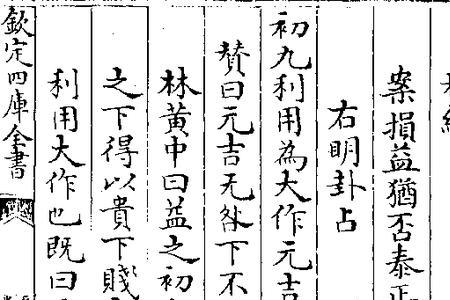 案損益猶否泰
右明卦占
初九利用為大作元吉
贊曰元吉无咎下不
林黃中曰益之初
之下得以貴下賤
利用大作也既曰
欽定四庫全書